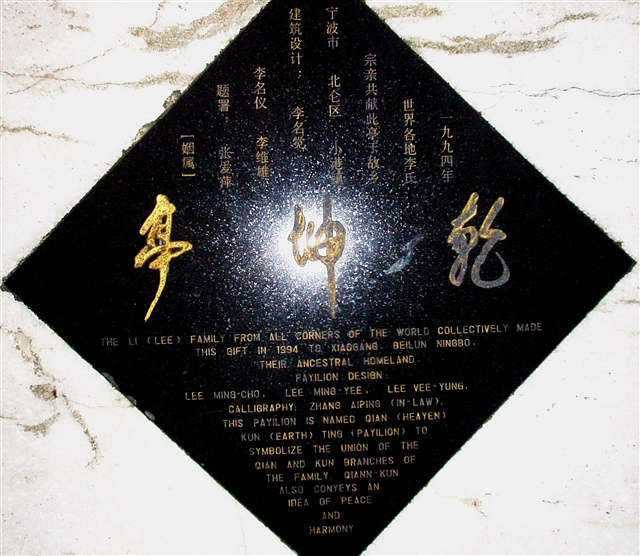 一九九四年
世界各地李氏
宗亲共献此亭于故乡
宁波市 北仑区 小港
建筑设计: 李名觉
李名仪
题署: 张爱萍
[姻属]
乾坤亭
THE LI (LEE) FAMILY FROM ALL CORNERS OF THE WORLD COLLECTIVELY MADE
THIS GIFT IN 1994 TO XIAOGANG, BEILUN NINGBO,
THEIR ANCESTRAL HOMELAND.
PAVILION DESIGN:
LEE MING-CHO, LEE MING-YEE, LEE VEE-YUNG,
CALLIGRAPHY: ZHANG AIPING (IN-LAW),
THIS PAVILION IS NAMED QIAN (HEAVEN)
KUN (EARTH) TING (PAVILION) TO
SYMBOLIZE THE UNION OF THE
QIAN AND KUN BRANCHES OF
THE FAMILY. QIANN-KUN
ALSO CONVEYS AN
IDEA OF PEACE
AND
HARMONY